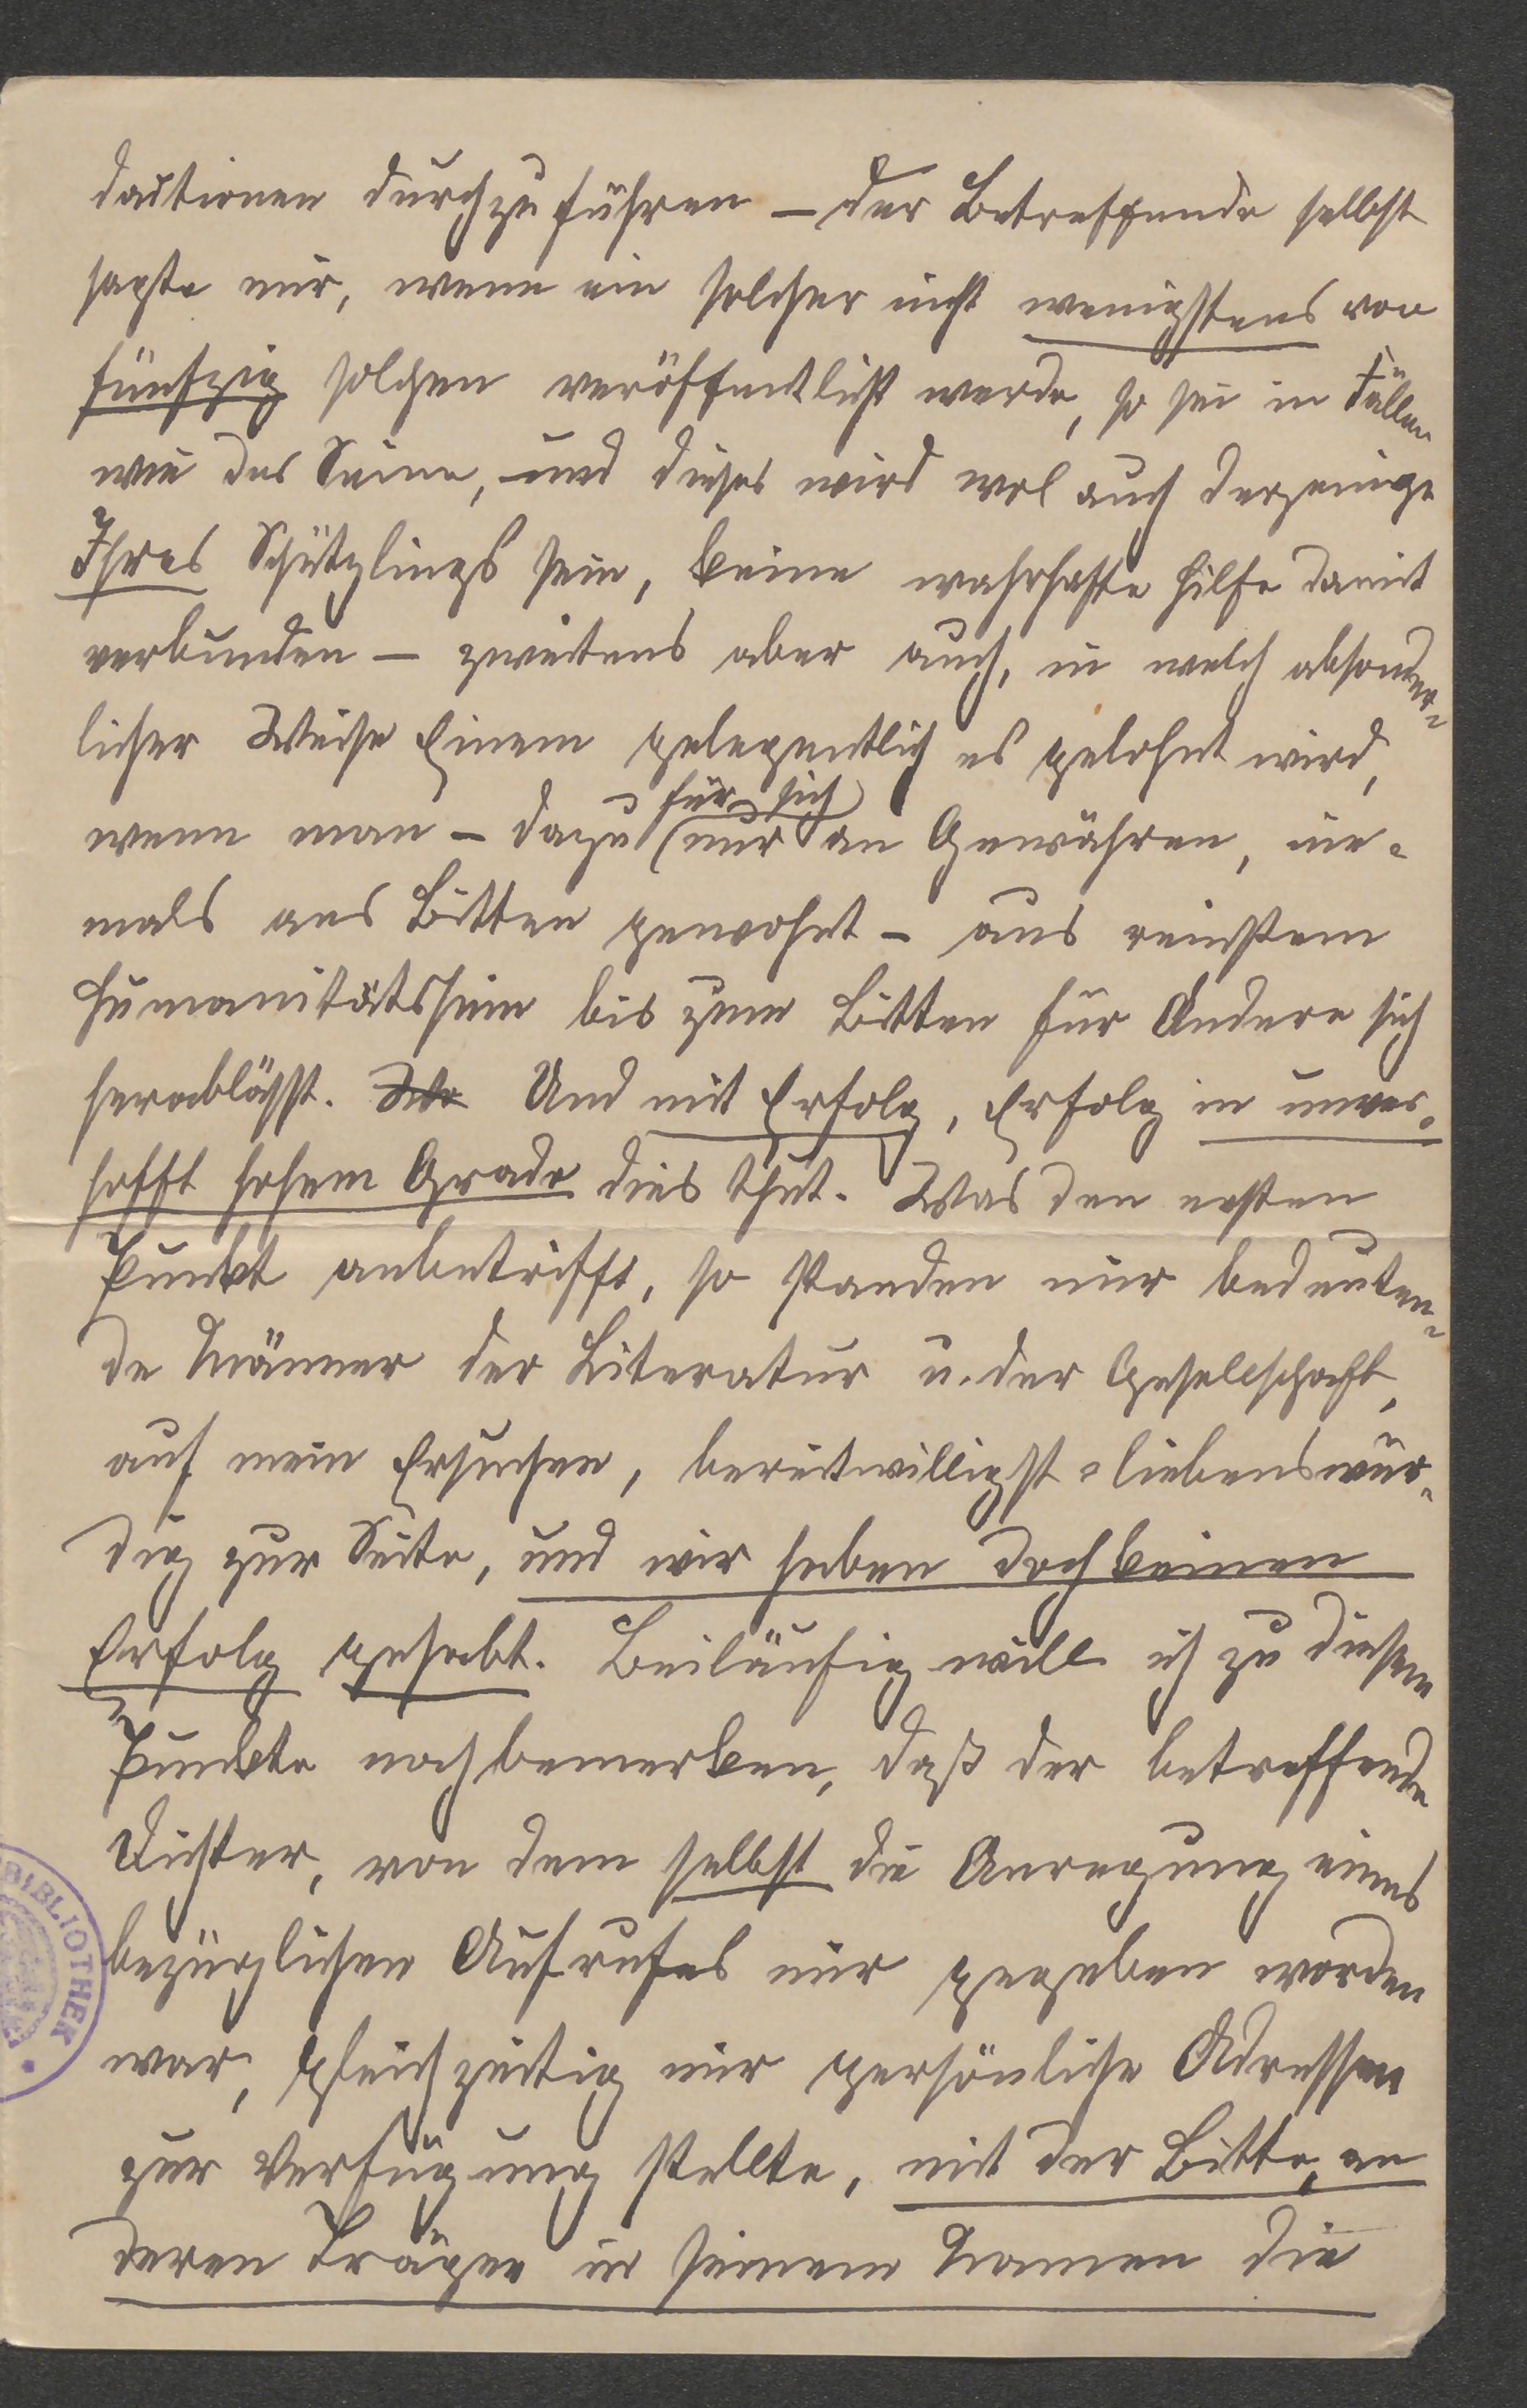 dactionen durchzuführen – der Betreffende selbst
sagte mir, wenn ein solcher nicht wenigstens von
fünfzig solchen veröffentlicht werde, so sei in Fällen
wie das Seine, und dieses wird wol auch derjenige
Ihres Schützlings sein, keine wahrhafte Hilfe damit
verbunden – zweitens aber auch, in welch absonder-
licher Weise Einem gelegentlich es gelohnt wird,
für sich
wenn man – dazu nur an Gewähren, nie-
mals ans Bitten gewohnt – aus reinstem
Humanitätssinn bis zum Bitten für Andere sich
herablässt. Und mit Erfolg, Erfolg in unver-
hofft hohem Grade dies thut. Was den ersten
Punkt anbetrifft, so standen mir bedeuten-
de Männer der Literatur u. der Gesellschaft,
auf mein Ersuchen, bereitwilligst-liebenswür-
dig zur Seite, und wir haben doch keinen
Erfolg gehabt. Beiläufig will ich zu diesem
Punkte noch bemerken, daß der betreffende
Dichter, von dem selbst die Anregung eines
bezüglichen Aufrufes mir gegeben worden
war, gleichzeitig mir persönliche Adressen
zur Verfügung stellte, mit der Bitte, an
deren Träger in seinem Namen die
BIBLIOTHEK